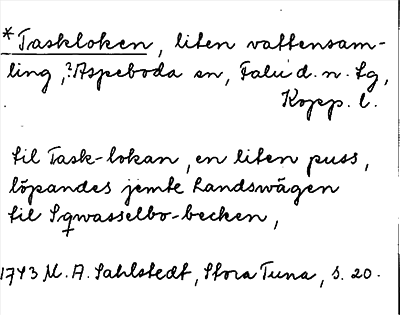 *Taskloken, liten vattensam-
ling, ?Aspeboda sn, Falu d. n. Lg,
Kopp. l.
til Task-lokan, en liten puss,
löpandes jemte Landswägen
til Sqwasselbo-becken,
1743 M. A. Sahlstedt, Stora Tuna, s. 20.